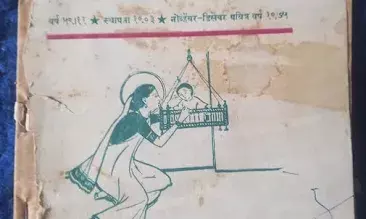 वर्ष ५९/११ ★ स्थापना १९०३ ★ नोव्हेंबर-डिसेंबर पवित्र वर्ष १९७५